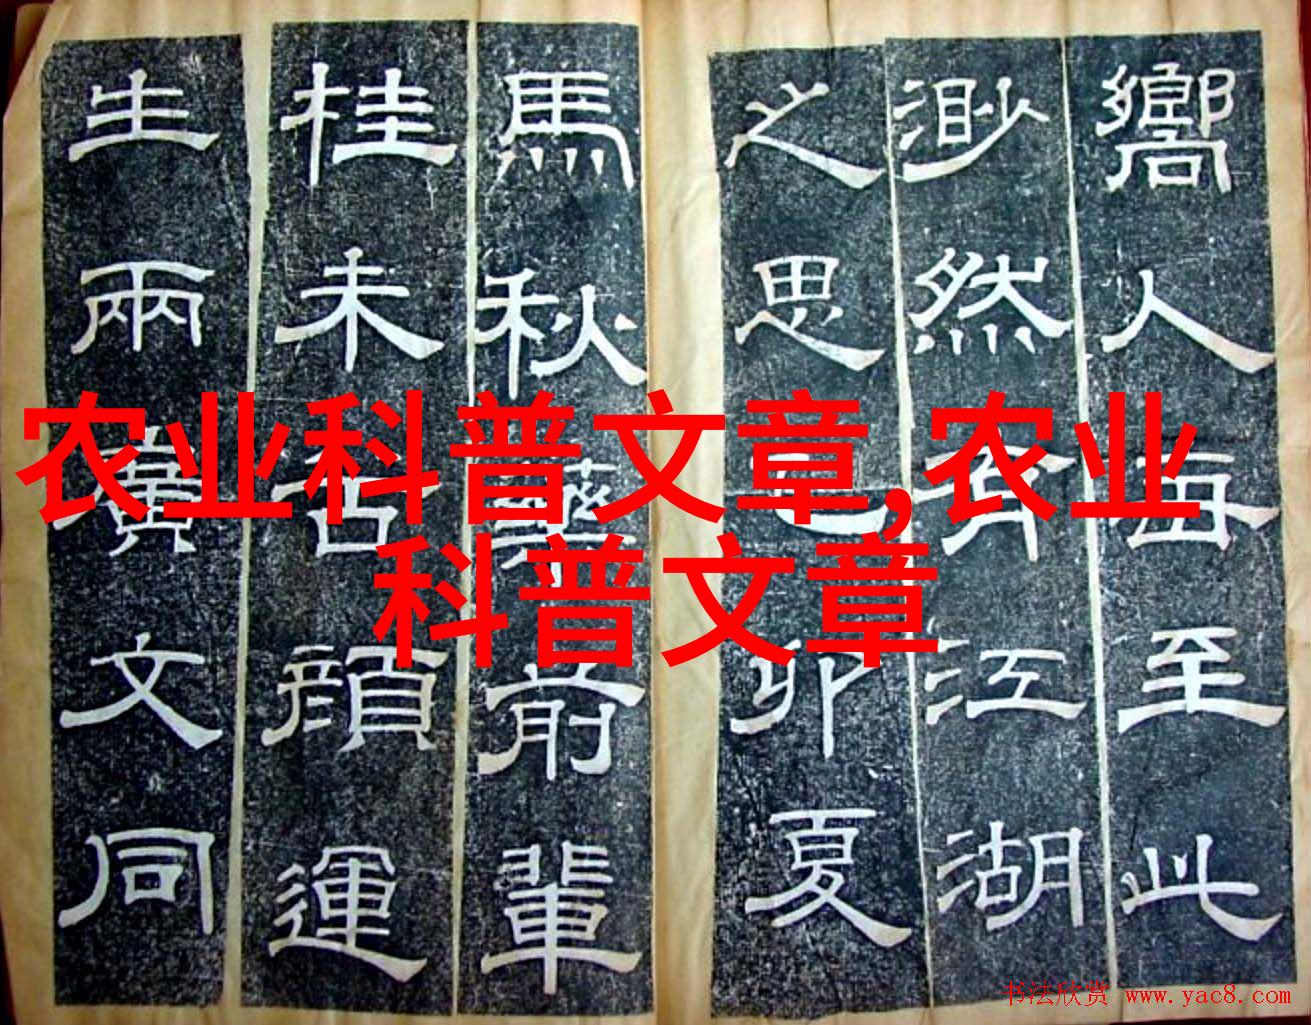 农业科普文章,农业
科普文章
嚮人每至此
渺然有江湖
之思己卯夏
馬秋藥前輩
桂未谷顏運
生兩廣文同
书法欣赏 www.yac8.com